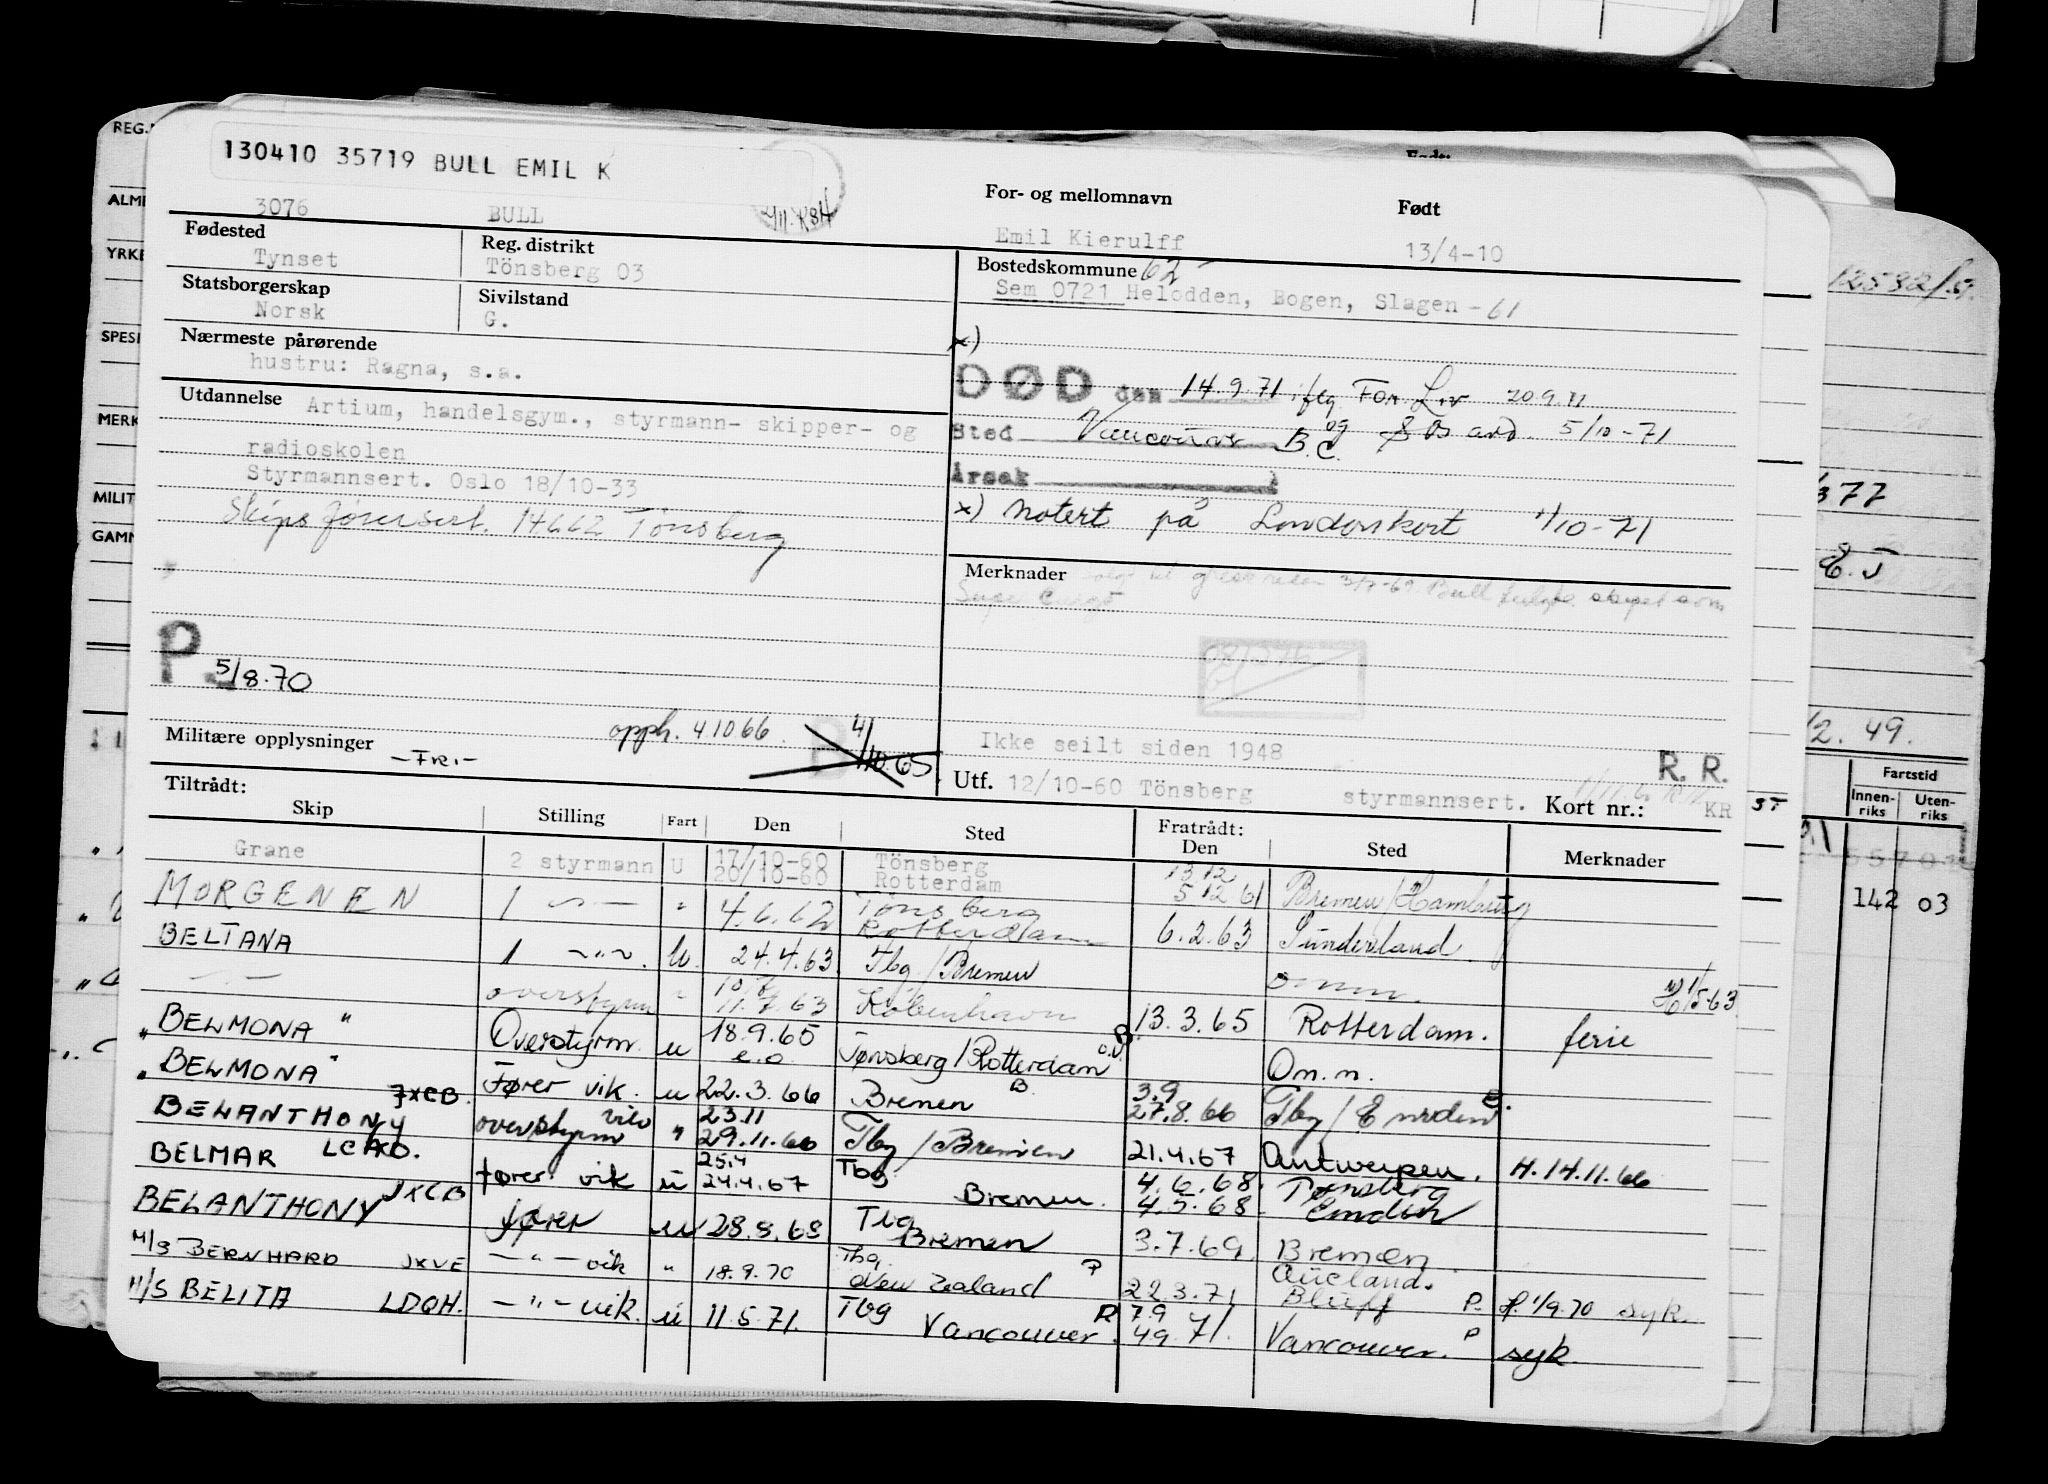 130410 35719 BULL EMIL K
3076 BULL
For- og mellomnavn
Født
Emil Kierulff
13/4-10
Fødested
Tynset
Reg. distrikt
Tönsberg 03
Bostedskommune 62
Sem 0721 Helodden, Bogen, Slagen - 61
Statsborgerskap
Norsk
Sivilstand
G.
Nærmeste pårørende
hustru: Ragna, s.a.
x)
DØD den 14.9.71 iflg For. Liv 20.9.71
Sted Vancouver B.C. og avd. 5/10-71
Årsak
x) Notert på Londonkort 1/10-71
Utdannelse Artium, handelsgym., styrmann- skipper- og
radioskolen
Styrmannsert. Oslo 18/10-33
Skipsförersert. 14662 Tönsberg
Merknader
P 5/8.70
Militære opplysninger
-Fri.-
opph. 4.10.66
B 4/10.65
Ikke seilt siden 1948
R. R.
Utf. 12/10-60 Tönsberg styrmannsert. Kort nr.: KR
Tiltrådt:
Skip Stilling Fart Den Sted Fratrådt: Den Sted Merknader
Grane 2 styrmann U 17/10-60 20/10-60 Tönsberg Rotterdam 13 12 5 12 61 Bremen/Hamburg
MORGENEN 1 -"- " 4.6.62 Tönsberg Rotterdam 6.2.63 Sunderland
BELTANA 1 -"- U. 24.4.63 Tbg/Bremen omm.
-"- overstyrm " 11.7.63 København 13.3.65 Rotterdam. ferie
"BELMONA" Overstyrm. u 18.9.65 e.o. Tønsberg/Rotterdam Om.m.
"BELMONA" Fører vik. u 22.3.66 Bremen 3.9 27.8.66 Tbg/Emden
BELANTHONY JXCB. overstyrm vik " 23.11 29.11.66 Tbg/Bremen 21.4.67 Antwerpen. H.14.11.66
BELMAR fører vik u 25.4 24.4.67 Tbg Bremen. 4.6.68. 4.5.68. Tønsberg Emden
BELANTHONY JXCB fører u 28.8.68 Tbg Bremen 3.7.69 Bremen
M/S BERNHARD JXVE -"- vik " 18.9.70 Tbg New Zealand P 22.3.71 Aucland. Bluff P. H. 1/9.70 syk.
M/S BELITA LDQH. -"- vik. u 11.5.71. Tbg Vancouver. 7.9 4.9.71. Vancouver. P syk.
Fartstid
Innenriks Utenriks
142 03
377
E.J
2. 49.